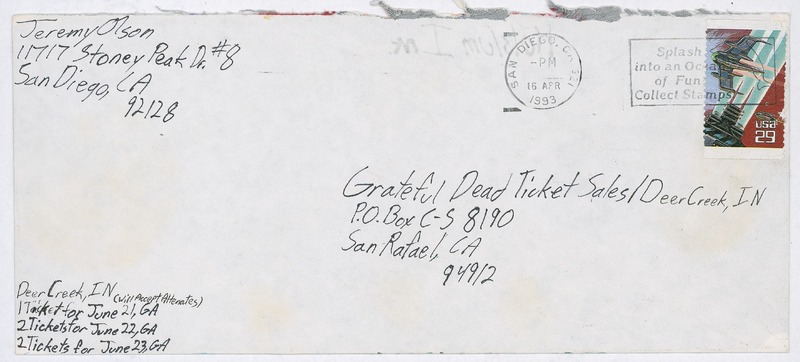 Jeremy Olson
11717 Stoney Peak Dr. #8
San Diego, CA
92128
SAN DIEGO, CA 921
-PM
16 APR
1993
Splash
into an Ocean
of Fun
Collect Stamps
USA
29
Grateful Dead Ticket Sales/Deer Creek, IN
P.O. Box C-S 8190
San Rafael, CA
94912
Deer Creek, IN (will Accept Alternates)
1 Ticket for June 21, GA
2 Tickets for June 22, GA
2 Tickets for June 23, GA